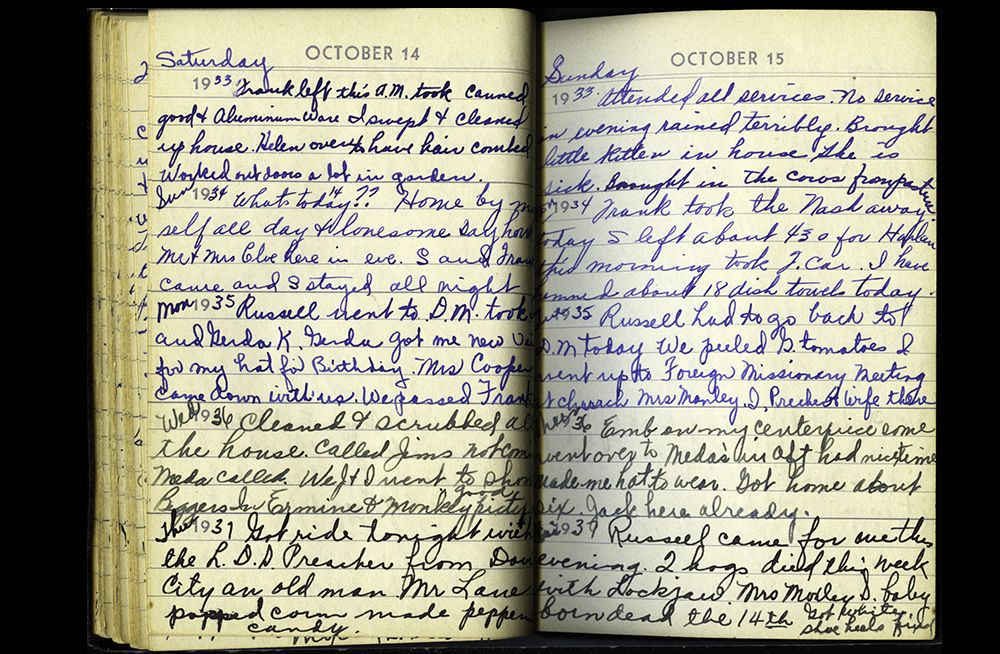 OCTOBER 14
Saturday
1933 Frank left this A.M. took canned
good & Aluminum ware I swept & cleaned
up house. Helen over to have hair combed
Worked out doors a lot in garden.
Sun 1934 Whats today?? 14 Home by my
self all day & lonesome Day
Mr & Mrs here in eve. S and Frank
came and S stayed all night
Mon 1935 Russell went to D.M. took
and Gerda K. Gerda got me new
for my hat for Birthday. Mrs Cooper
came down with us. We passed Frank
Wed 1936 Cleaned & scrubbed all
the house. Called Jims not
Meda called. We J & I went to show
Beggers In Ermine & Monkey good
Thur 1937 Got ride tonight with
the L.D.S Preacher from
City an old man Mr Lane
popped corn made pepper
candy.
OCTOBER 15
Sunday
1933. Attended all services. No service
in evening rained terribly. Brought
little Kitten in house She is
sick. Brought in the cows from pasture
1934 Frank took the Nash away
today S left about 430 for
this morning took J. Car. I have
hemmed about 18 dish towels today.
1935 Russell had to go back to
D.M today We peeled G. tomatoes I
went up to Foreign Missionary Meeting
at church Mrs Manley, I, Preacher & wife there
36 Emb on my centerpiece some
went over to Meda's in aft had nice time
made me hat to wear. Got home about
six. Jack here already.
1937 Russell came for me this
evening. 2 hogs died this week
with Lockjaw Mrs D. baby
born dead the 14th Got white
shoe heels fixed